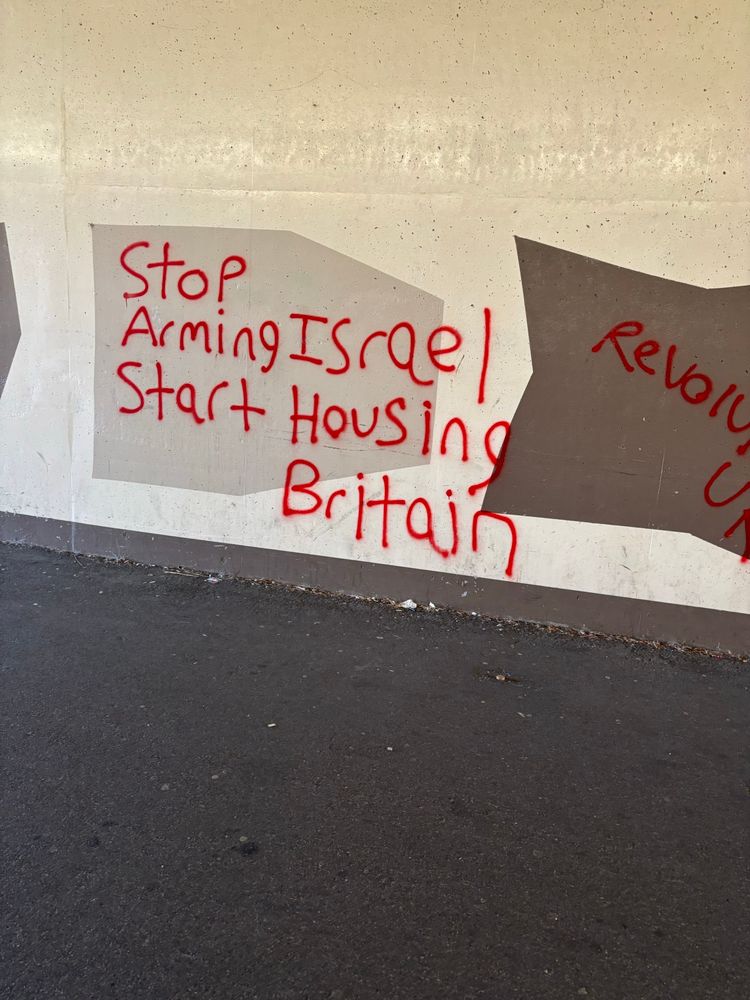 Stop
Arming Israel
Start Housing
Britain